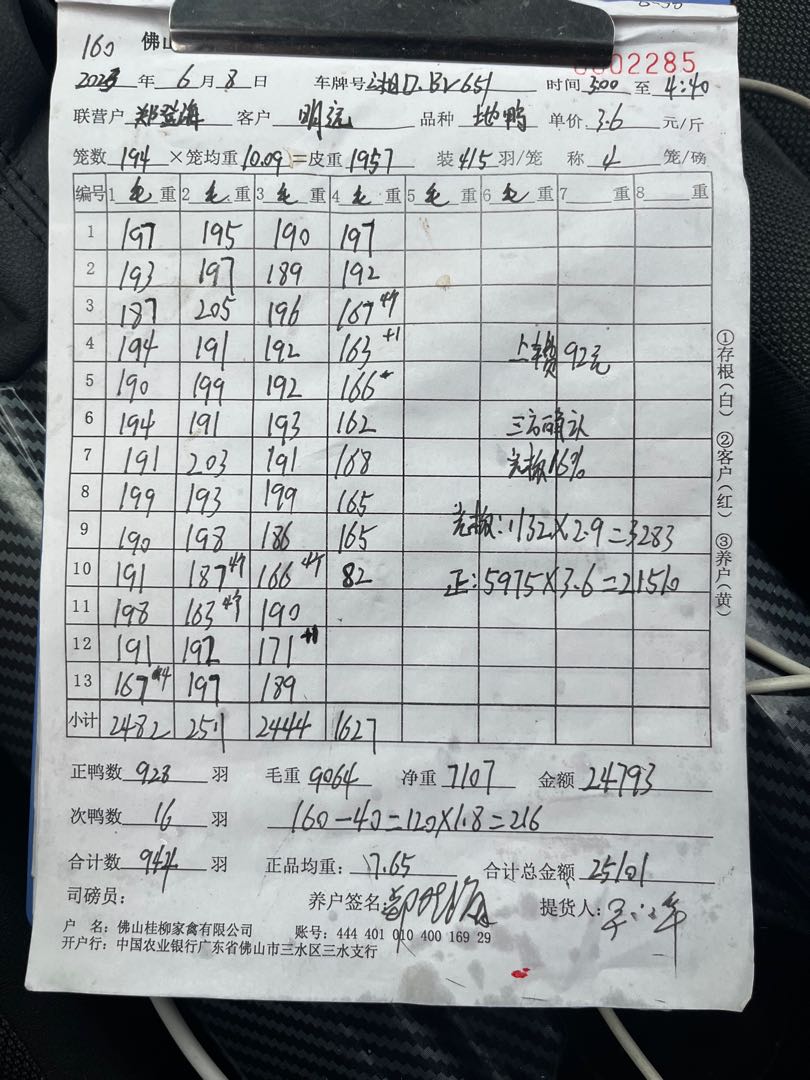 160 佛山
0002285
2023 年 6 月 8 日 车牌号 湘D.BV651 时间 3:00 至 4:40
联营户 郑登海 客户 明远 品种 地鸭 单价 3.6 元/斤
笼数 194 ×笼均重 10.09 =皮重 1957 装 4/5 羽/笼 称 4 笼/磅
编号 1 毛 重 2 毛 重 3 毛 重 4 毛 重 5 毛 重 6 毛 重 7 重 8 重
1 197 195 190 197
2 193 197 189 192
3 187 205 196 167
4 194 191 192 163 +1 上车费 92元
5 190 199 192 166
6 194 191 193 162 三方确认
7 191 203 191 168 光板16%
8 199 193 199 165
9 190 198 186 165 光板:1132×2.9=3283
10 191 187 166 82 正:5975×3.6=21510
11 198 163 190
12 191 192 171
13 167 197 189
小计 2482 2511 2444 1627
正鸭数 928 羽 毛重 9064 净重 7107 金额 24793
次鸭数 16 羽 160-40=120×1.8=216
合计数 944 羽 正品均重: 7.65 合计总金额 25101
司磅员: 养户签名: 提货人:
户 名: 佛山桂柳家禽有限公司 账号: 444 401 010 400 169 29
开户行: 中国农业银行广东省佛山市三水区三水支行
①存根(白) ②客户(红) ③养户(黄)